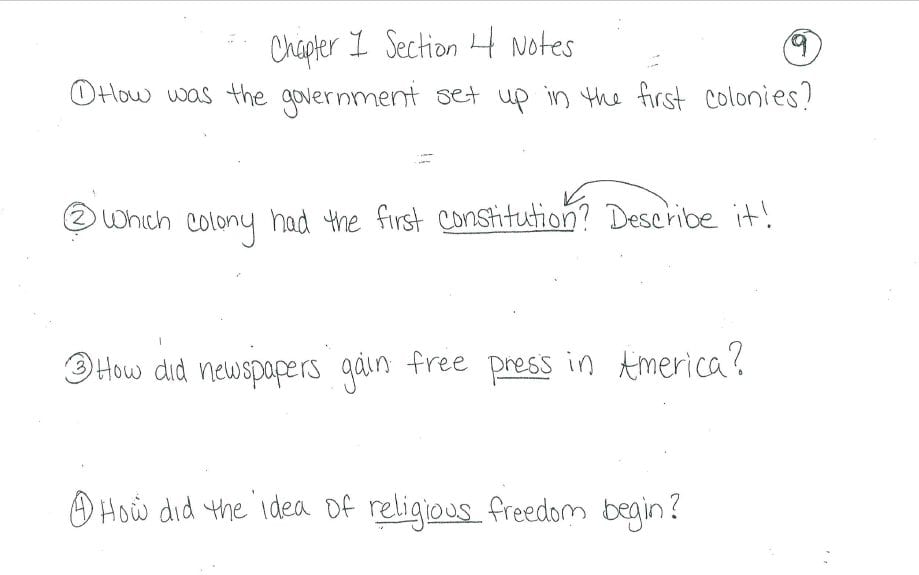 Chapter 1 Section 4 Notes
9
① How was the government set up in the first colonies?
② Which colony had the first constitution? Describe it!
③ How did newspapers gain free press in America?
④ How did the idea of religious freedom begin?